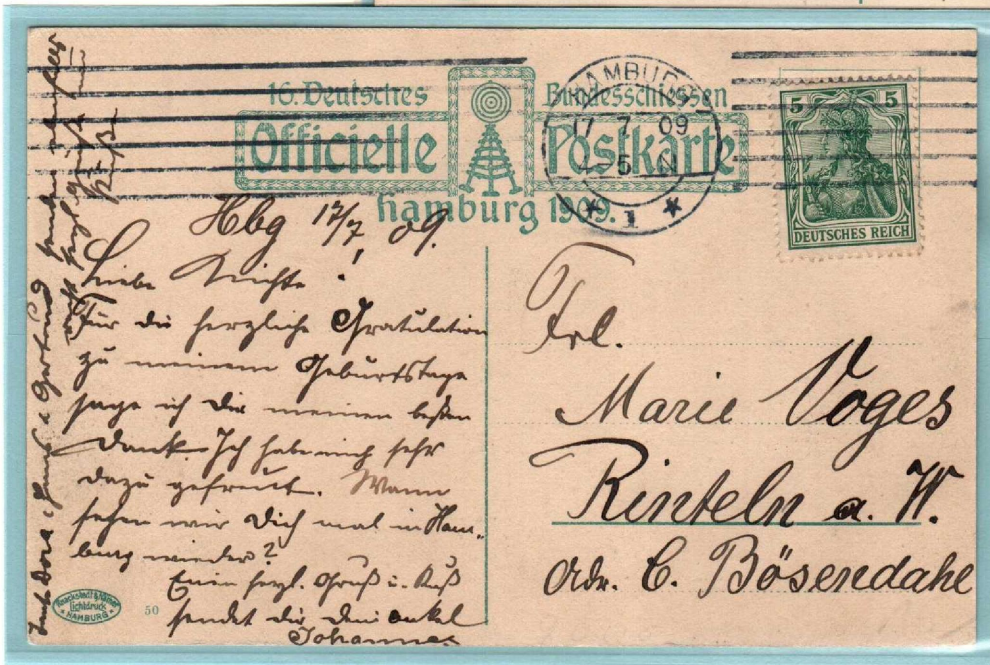 16. Deutsches Bundesschiessen
Officielle Postkarte
Hamburg 1909.
HAMBURG
17 7 09
4-5 N
* 1 *
5 5
DEUTSCHES REICH
Hbg 17/7 09.
Liebe Nichte!
Für die herzliche Gratulation
zu meinem Geburtstage
sage ich Dir meinen besten
Dank. Ich habe mich sehr
dazu gefreut. Wann
sehen wir Dich mal in Ham-
burg wieder?
Einen herzl. Gruß u. Kuß
sendet dir Dein onkel
Johannes
Tante Dora, Hans u Gertrud senden
Frl.
Marie Voges
Rinteln a. W.
Adr. C. Bösendahl
Knackstedt & Näther
Lichtdruck
HAMBURG
50